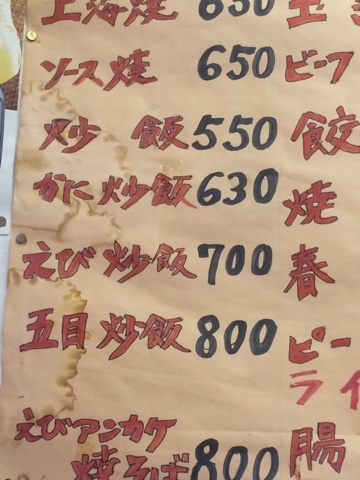 上海焼 650
ソース焼 650
炒飯 550
かに炒飯 630
えび炒飯 700
五目炒飯 800
えびアンカケ
焼そば 800
ビーフ
餃
焼
春
ピー
ライ
腸